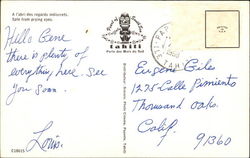 A l'abri des regards indiscrets.
Safe from prying eyes.
tahiti
Perle des Mers du Sud
Hello Gene
there is plenty of
everything here. See
You Soon.
Louis.
Eugene Giles
1275 Calle Pimiento
Thousand Oaks
Calif.
91360
C10015